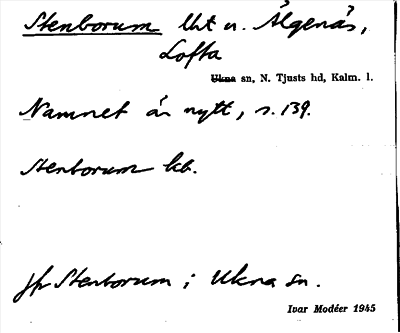 Stenborum lht u. Älgenäs,
Lofta
Ukna sn, N. Tjusts hd, Kalm. l.
Namnet är nytt, s. 139.
Stenborum kb.
jfr Stenborum i Ukna sn.
Ivar Modéer 1945